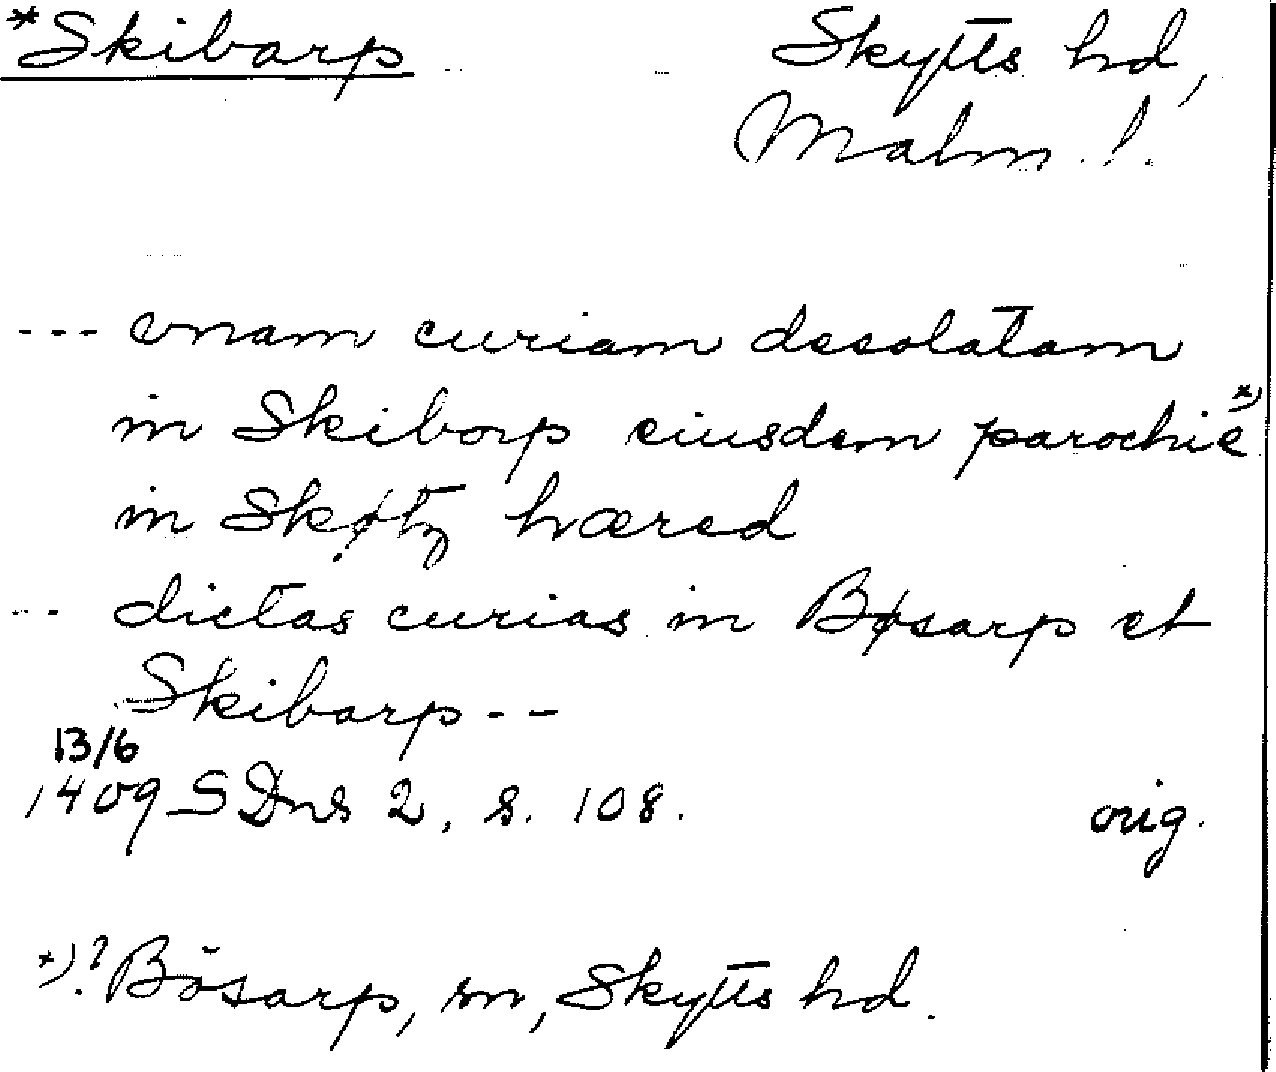 *Skibarp
Skytts hd,
Malm. l.
--- vnam curiam desolatam
in Skiborp eiusdem parochie *)
in Skøtz hæred
--- dictas curias in Bøsarp et
Skibarp --
13/6
1409 SDns 2, s. 108. orig.
*) ? Bösarp, sn, Skytts hd.